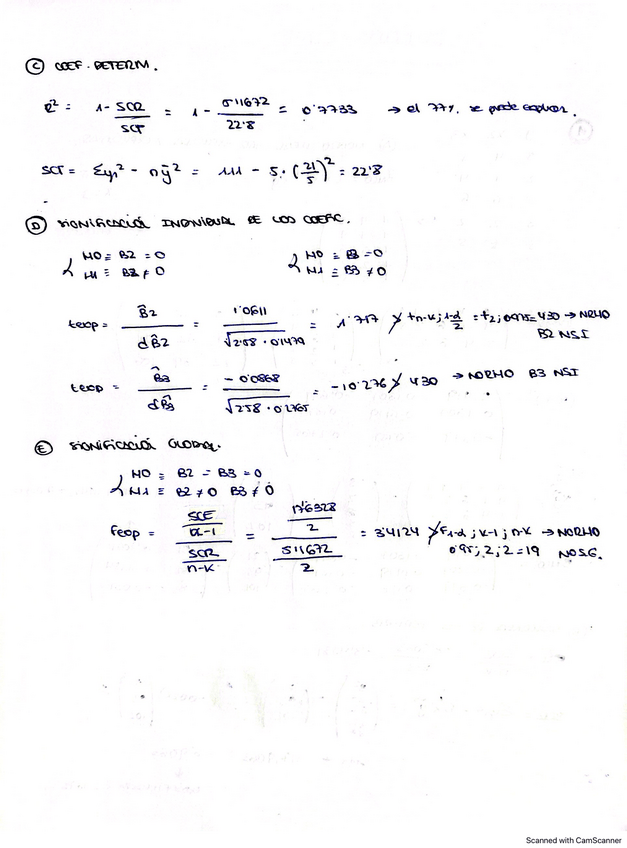 C COEF. DETERM.
R² = 1 - SCR / SCT = 1 - 5'11672 / 22'8 = 0'7733 → el 77% se puede explicar.
SCT = Σyi² - nȳ² = 111 - 5 · (21/5)² = 22'8
D SIGNIFICACIÓN INDIVIDUAL DE LOS COEFIC.
H0 ≡ B2 = 0 H0 ≡ B3 = 0
H1 ≡ B2 ≠ 0 H1 ≡ B3 ≠ 0
texp = B̂2 / σ̂B̂2 = 1'0611 / √2'58 · 0'1479 = 1'717 ≯ tn-k; 1-α/2 = t2; 0'975 = 4'30 → NRH0
B2 NSI
texp = B̂3 / σ̂B̂3 = -0'0868 / √2'58 · = -10'276 ≯ 4'30 → NORH0 B3 NSI
E SIGNIFICACIÓN GLOBAL.
H0 ≡ B2 = B3 = 0
H1 ≡ B2 ≠ 0 B3 ≠ 0
Fexp = SCE / k-1 / SCR / n-k = 17'6328 / 2 / 5'11672 / 2 = 3'4124 ≯ F1-α; k-1; n-k → NORH0
0'95; 2; 2 = 19 NO S.G.
Scanned with CamScanner